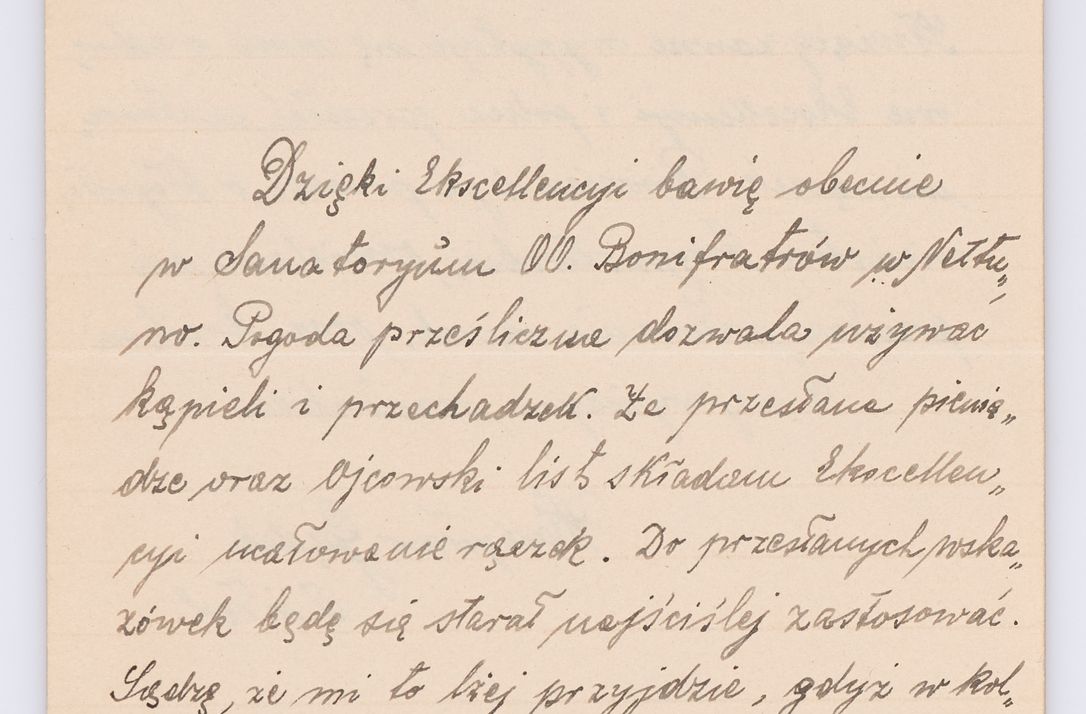 Dzięki Ekscellencyi bawię obecnie
w Sanatoryum OO. Bonifratrów w Nettu„
no. Pogoda prześliczna dozwala używać
kąpieli i przechadzek. Za przesłane pienią„
dze oraz Ojcowski list składam Ekscellen„
cyi ucałowanie rączek. Do przesłanych wska„
zówek będę się starał najściślej zastosować.
Sądzę, że mi to lżej przyjdzie, gdyż w kol„